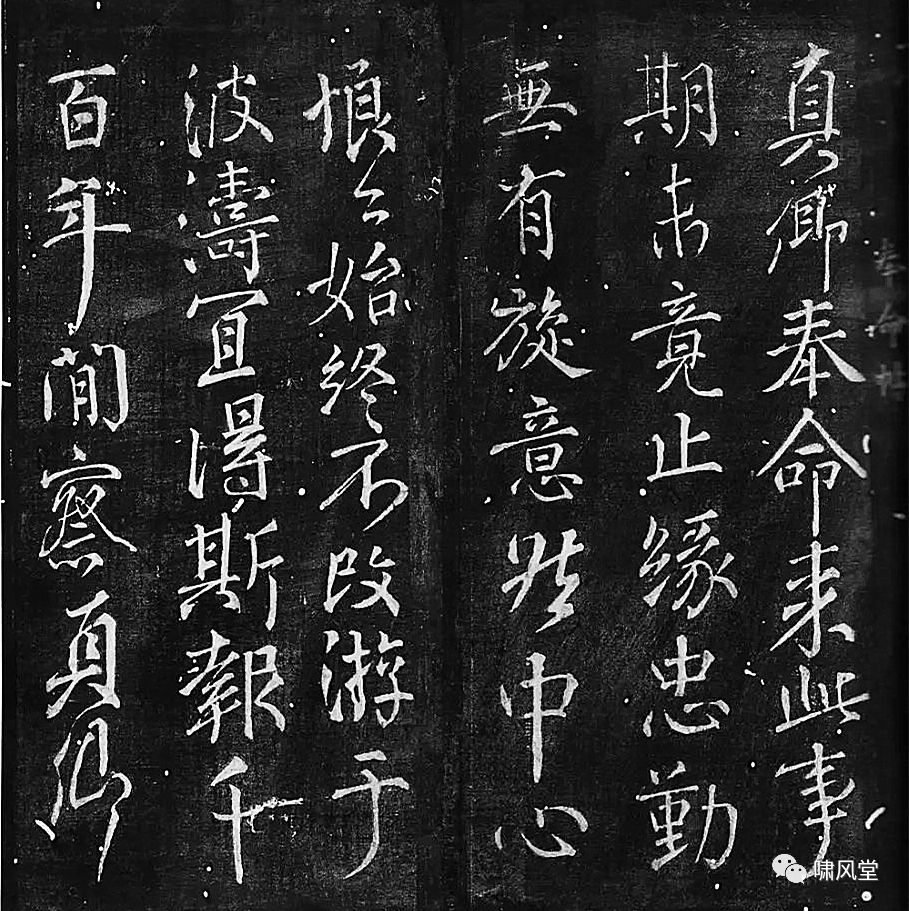 真卿奉命来此事
期未竟止緣忠勤
無有旋意然中心
悢悢始終不改游于
波濤宜得斯報千
百年間察真卿
奉命帖
啸风堂